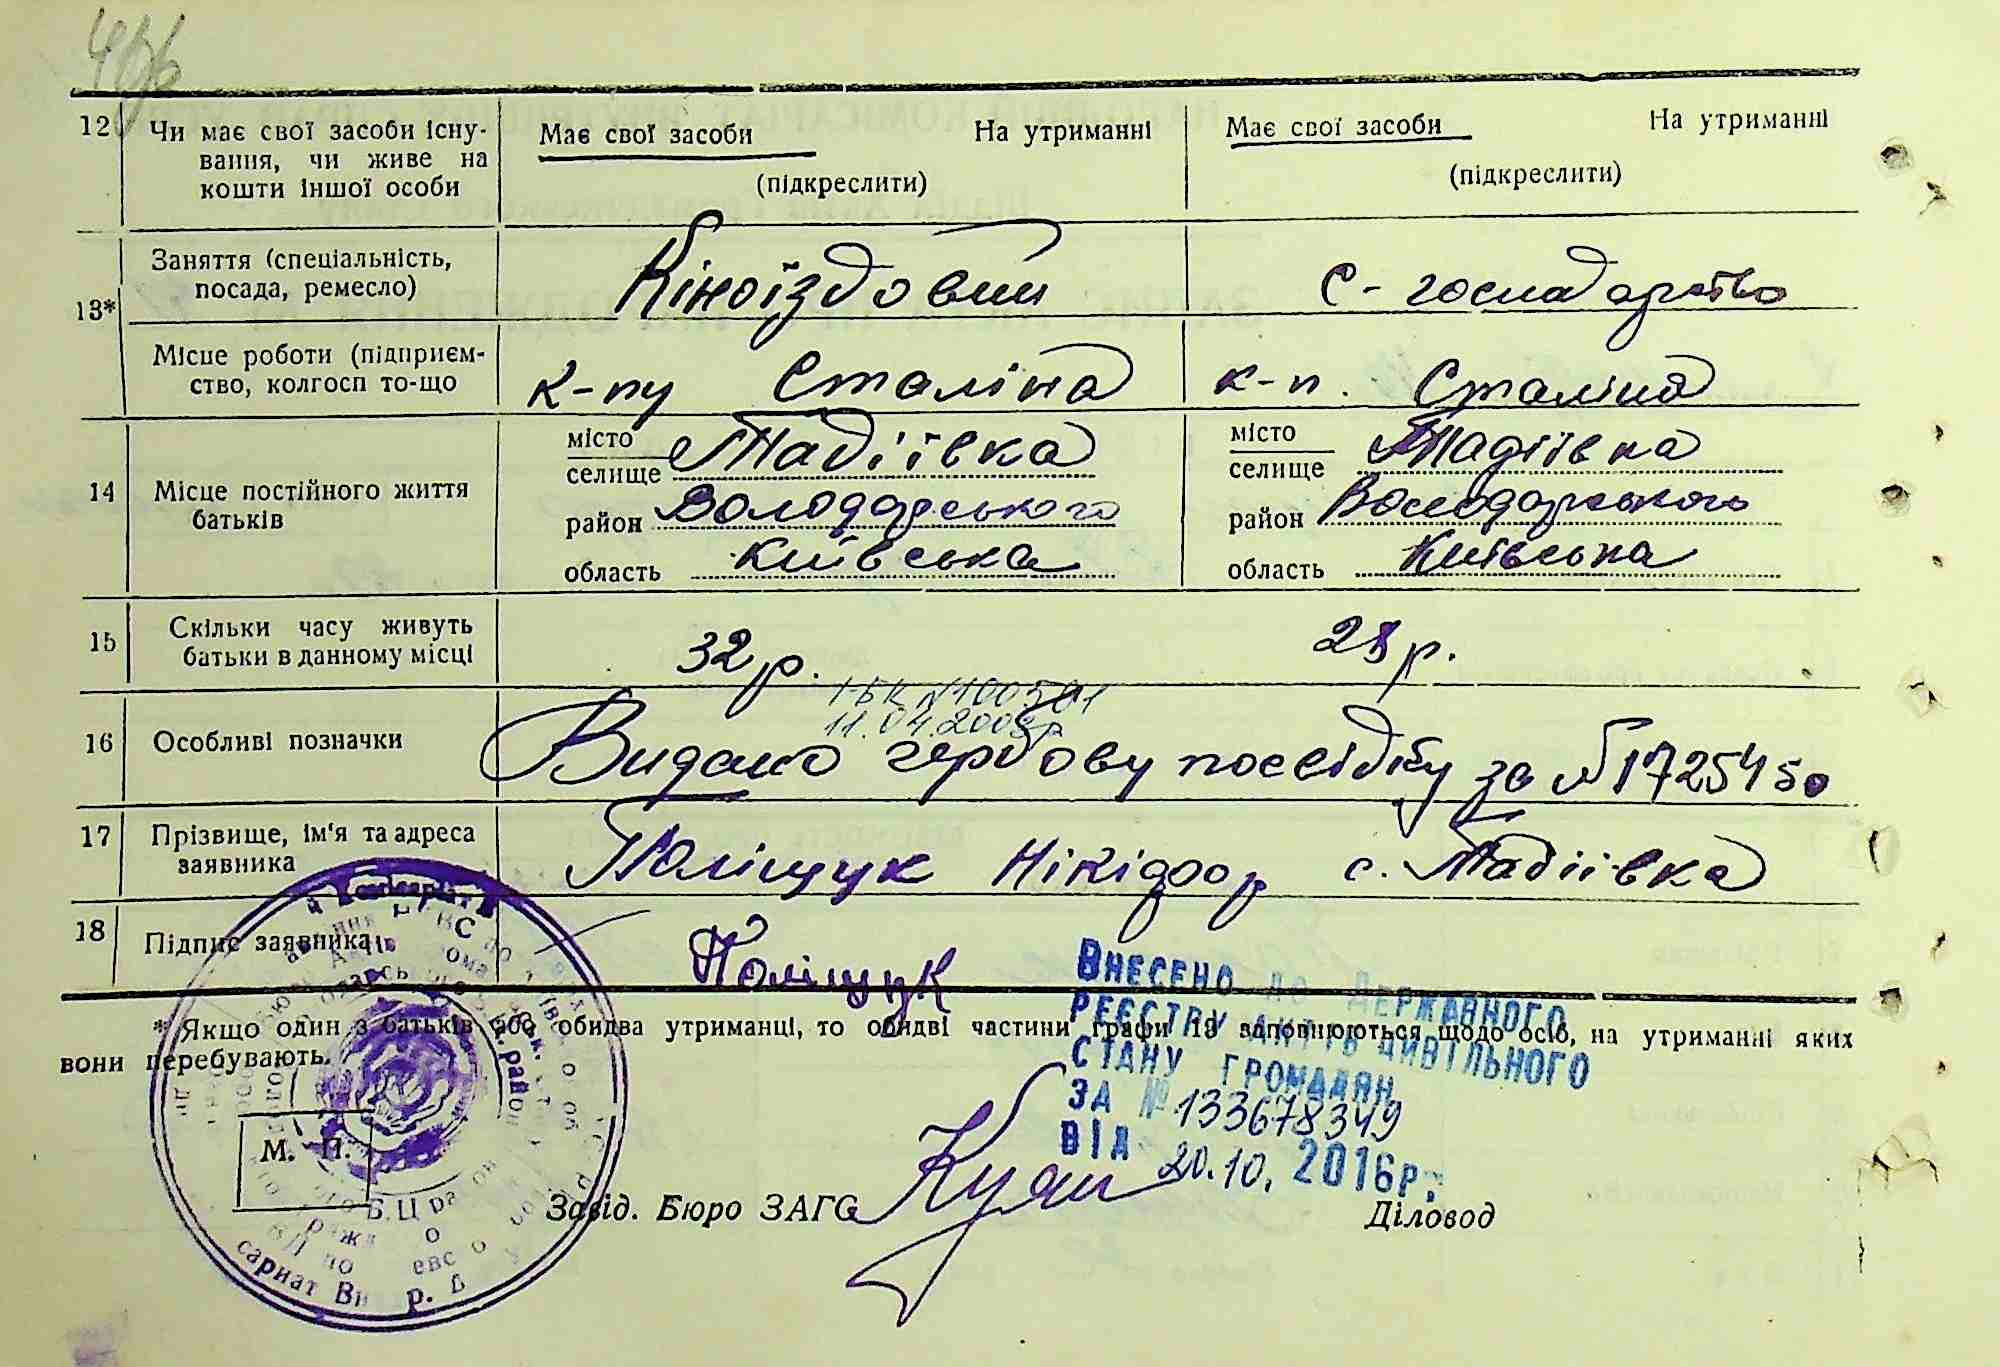 12 Чи має свої засоби існу-
вання, чи живе на
кошти іншої особи
Має свої засоби На утриманні
(підкреслити)
Має свої засоби На утриманні
(підкреслити)
13*
Заняття (спеціальність,
посада, ремесло)
Кіноїздовий
с-господарство
Місце роботи (підприєм-
ство, колгосп то-що
к-пу Сталіна
к-п. Сталіна
14 Місце постійного життя
батьків
місто
селище Тадіївка
район Володарського
область Київська
місто
селище Тадіївка
район Володарського
область Київська
15 Скільки часу живуть
батьки в данному місці
32 р.
28 р.
І-БК №100501
11.04.2008р
16 Особливі позначки
Видано гербову посвідку за №1725450
17 Прізвище, ім'я та адреса
заявника
Поліщук Нікіфор с. Тадіївка
18 Підпис заявника
Поліщук
* Якщо один з батьків або обидва утриманці, то обидві частини графи 13 заповнюються щодо осіб, на утриманні яких
вони перебувають.
Внесено до Державного
реєстру актів цивільного
стану громадян
за № 133678349
від 20.10. 2016р.
М. П.
Завід. Бюро ЗАГС
Діловод